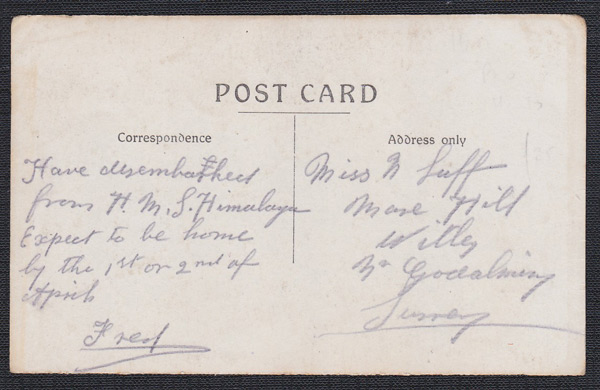 POST CARD
Correspondence
Have disembarked
from H.M.S. Himalaya
Expect to be home
by the 1st or 2nd of
April
Fred
Address only
Miss N Luff
Mare Hill
Witley
Nr Godalming
Surrey